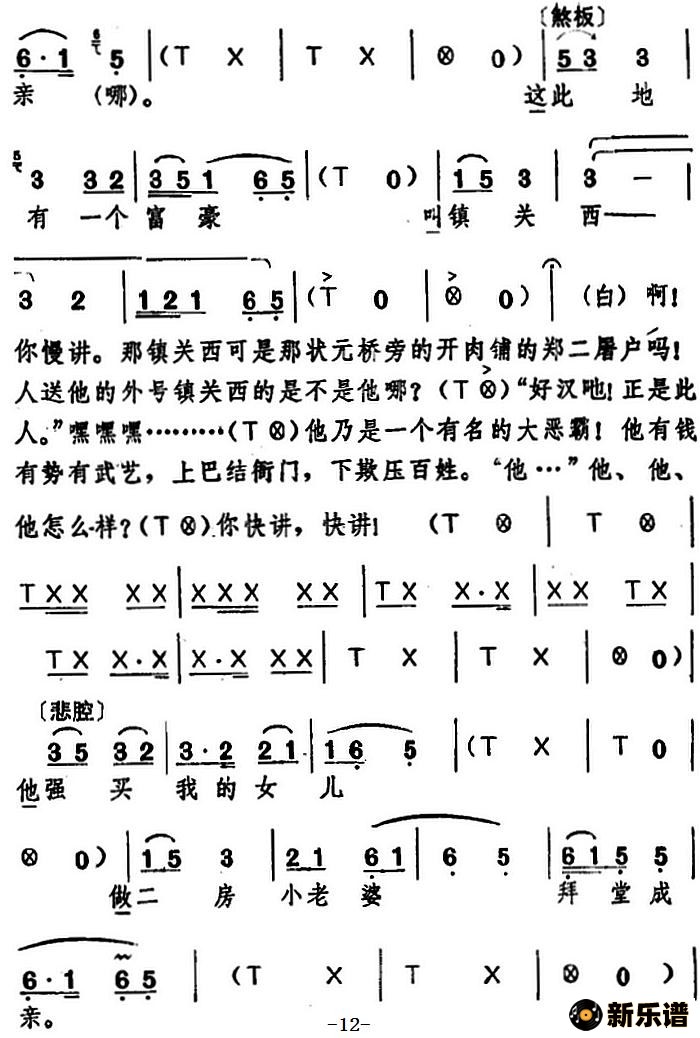 〔煞板〕
6·1 6 5 | (T X | T X | ⊗ 0) | 5 3 3
亲 (哪)。 这此 地
5 3 3 2 | 3 5 1 6 5 | (T 0) | 1 5 3 | 3 —
有 一个 富 豪 叫镇 关 西——
3 2 | 1 2 1 6 5 | (T 0 | ⊗ 0) | (白) 啊!
你慢讲。那镇关西可是那状元桥旁的开肉铺的郑二屠户吗!
人送他的外号镇关西的是不是他哪?(T ⊗)“好汉吔!正是此
人。”嘿嘿嘿………(T ⊗)他乃是一个有名的大恶霸!他有钱
有势有武艺,上巴结衙门,下欺压百姓。“他…”他、他、
他怎么样?(T ⊗)你快讲,快讲! (T ⊗ | T ⊗ |
T X X X X | X X X X X | T X X·X | X X T X |
T X X·X | X·X X X | T X | T X | ⊗ 0) |
〔悲腔〕
3 5 3 2 | 3·2 2 1 | 1 6 5 | (T X | T 0 |
他强 买 我 的 女 儿
⊗ 0) | 1 5 3 | 2 1 6 1 | 6 5 | 6 1 5 5 |
做二 房 小老 婆 拜 堂 成
6·1 6 5 | (T X | T X | ⊗ 0) |
亲。
-12-
新乐谱